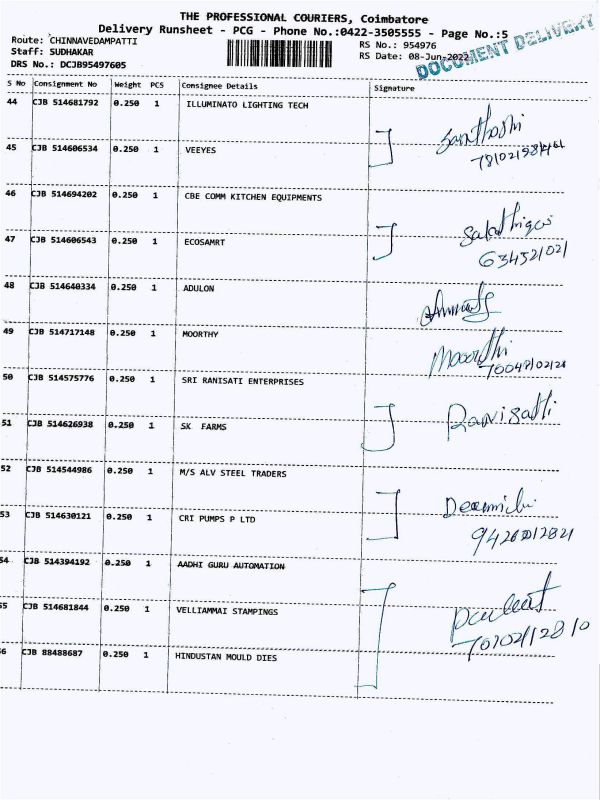 THE PROFESSIONAL COURIERS, Coimbatore
Delivery Runsheet - PCG - Phone No.:0422-3505555 - Page No.:5
Route: CHINNAVEDAMPATTI
Staff: SUDHAKAR
DRS No.: DCJB95497605
RS No.: 954976
RS Date: 08-Jun-2022
DOCUMENT DELIVERY
S No Consignment No Weight PCS Consignee Details Signature
44 CJB 514681792 0.250 1 ILLUMINATO LIGHTING TECH
45 CJB 514606534 0.250 1 VEEYES
46 CJB 514694202 0.250 1 CBE COMM KITCHEN EQUIPMENTS
47 CJB 514606543 0.250 1 ECOSAMRT
48 CJB 514640334 0.250 1 ADULON
49 CJB 514717148 0.250 1 MOORTHY
Moorthi
50 CJB 514575776 0.250 1 SRI RANISATI ENTERPRISES
Ranisatti
51 CJB 514626938 0.250 1 SK FARMS
52 CJB 514544986 0.250 1 M/S ALV STEEL TRADERS
53 CJB 514630121 0.250 1 CRI PUMPS P LTD
54 CJB 514394192 0.250 1 AADHI GURU AUTOMATION
55 CJB 514681844 0.250 1 VELLIAMMAI STAMPINGS
56 CJB 88488687 0.250 1 HINDUSTAN MOULD DIES